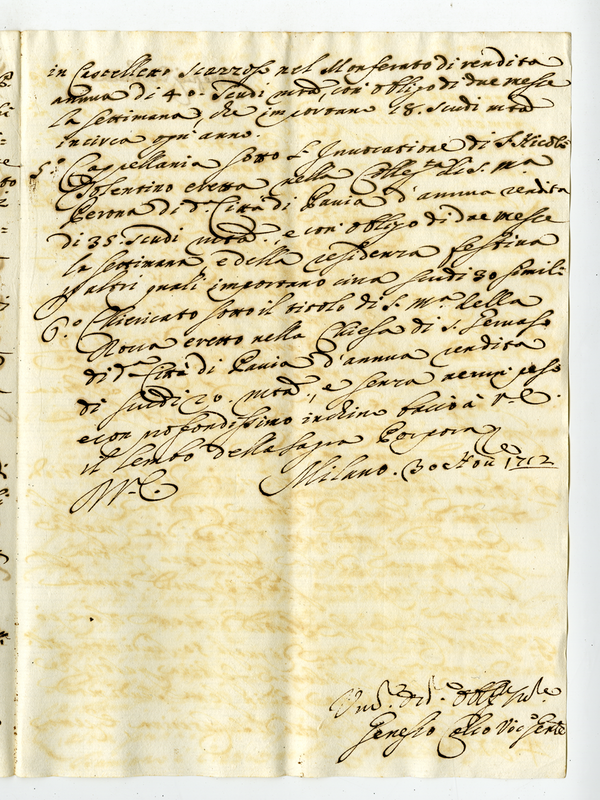 in Castelletto Scazzoso nel Monferrato di rendita
annua di 40. Scudi mta, con obligo di due messe
la settimana, che importano 18. scudi mta
incirca ogni anno.
5.o Cappellania sotto l'Invocatione di S. Nicola
Tolentino eretta nella Colleg.ta di S. Ma
Perona di d.a Città di Pavia d'annua rendita
di 35. scudi mta., e con obligo di due messe
la settimana, e della residenza festiva
p altri quali importano circa scudi 30 simili
6.o Chiericato sotto il titolo di S. Ma della
Rocca eretto nella Chiesa di S. Gervaso
di d.a Città di Pavia d'annua rendita
di scudi 20. mta, e senza verun peso
e con profondissimo inchino baccio à V. E.
il lembo della Sagra Porpora
Milano. 30 Nov.e 1712
V. E.
Um.o Di.o Obl.mo Ser.e
Genesio Calco Vic.o Gen.le